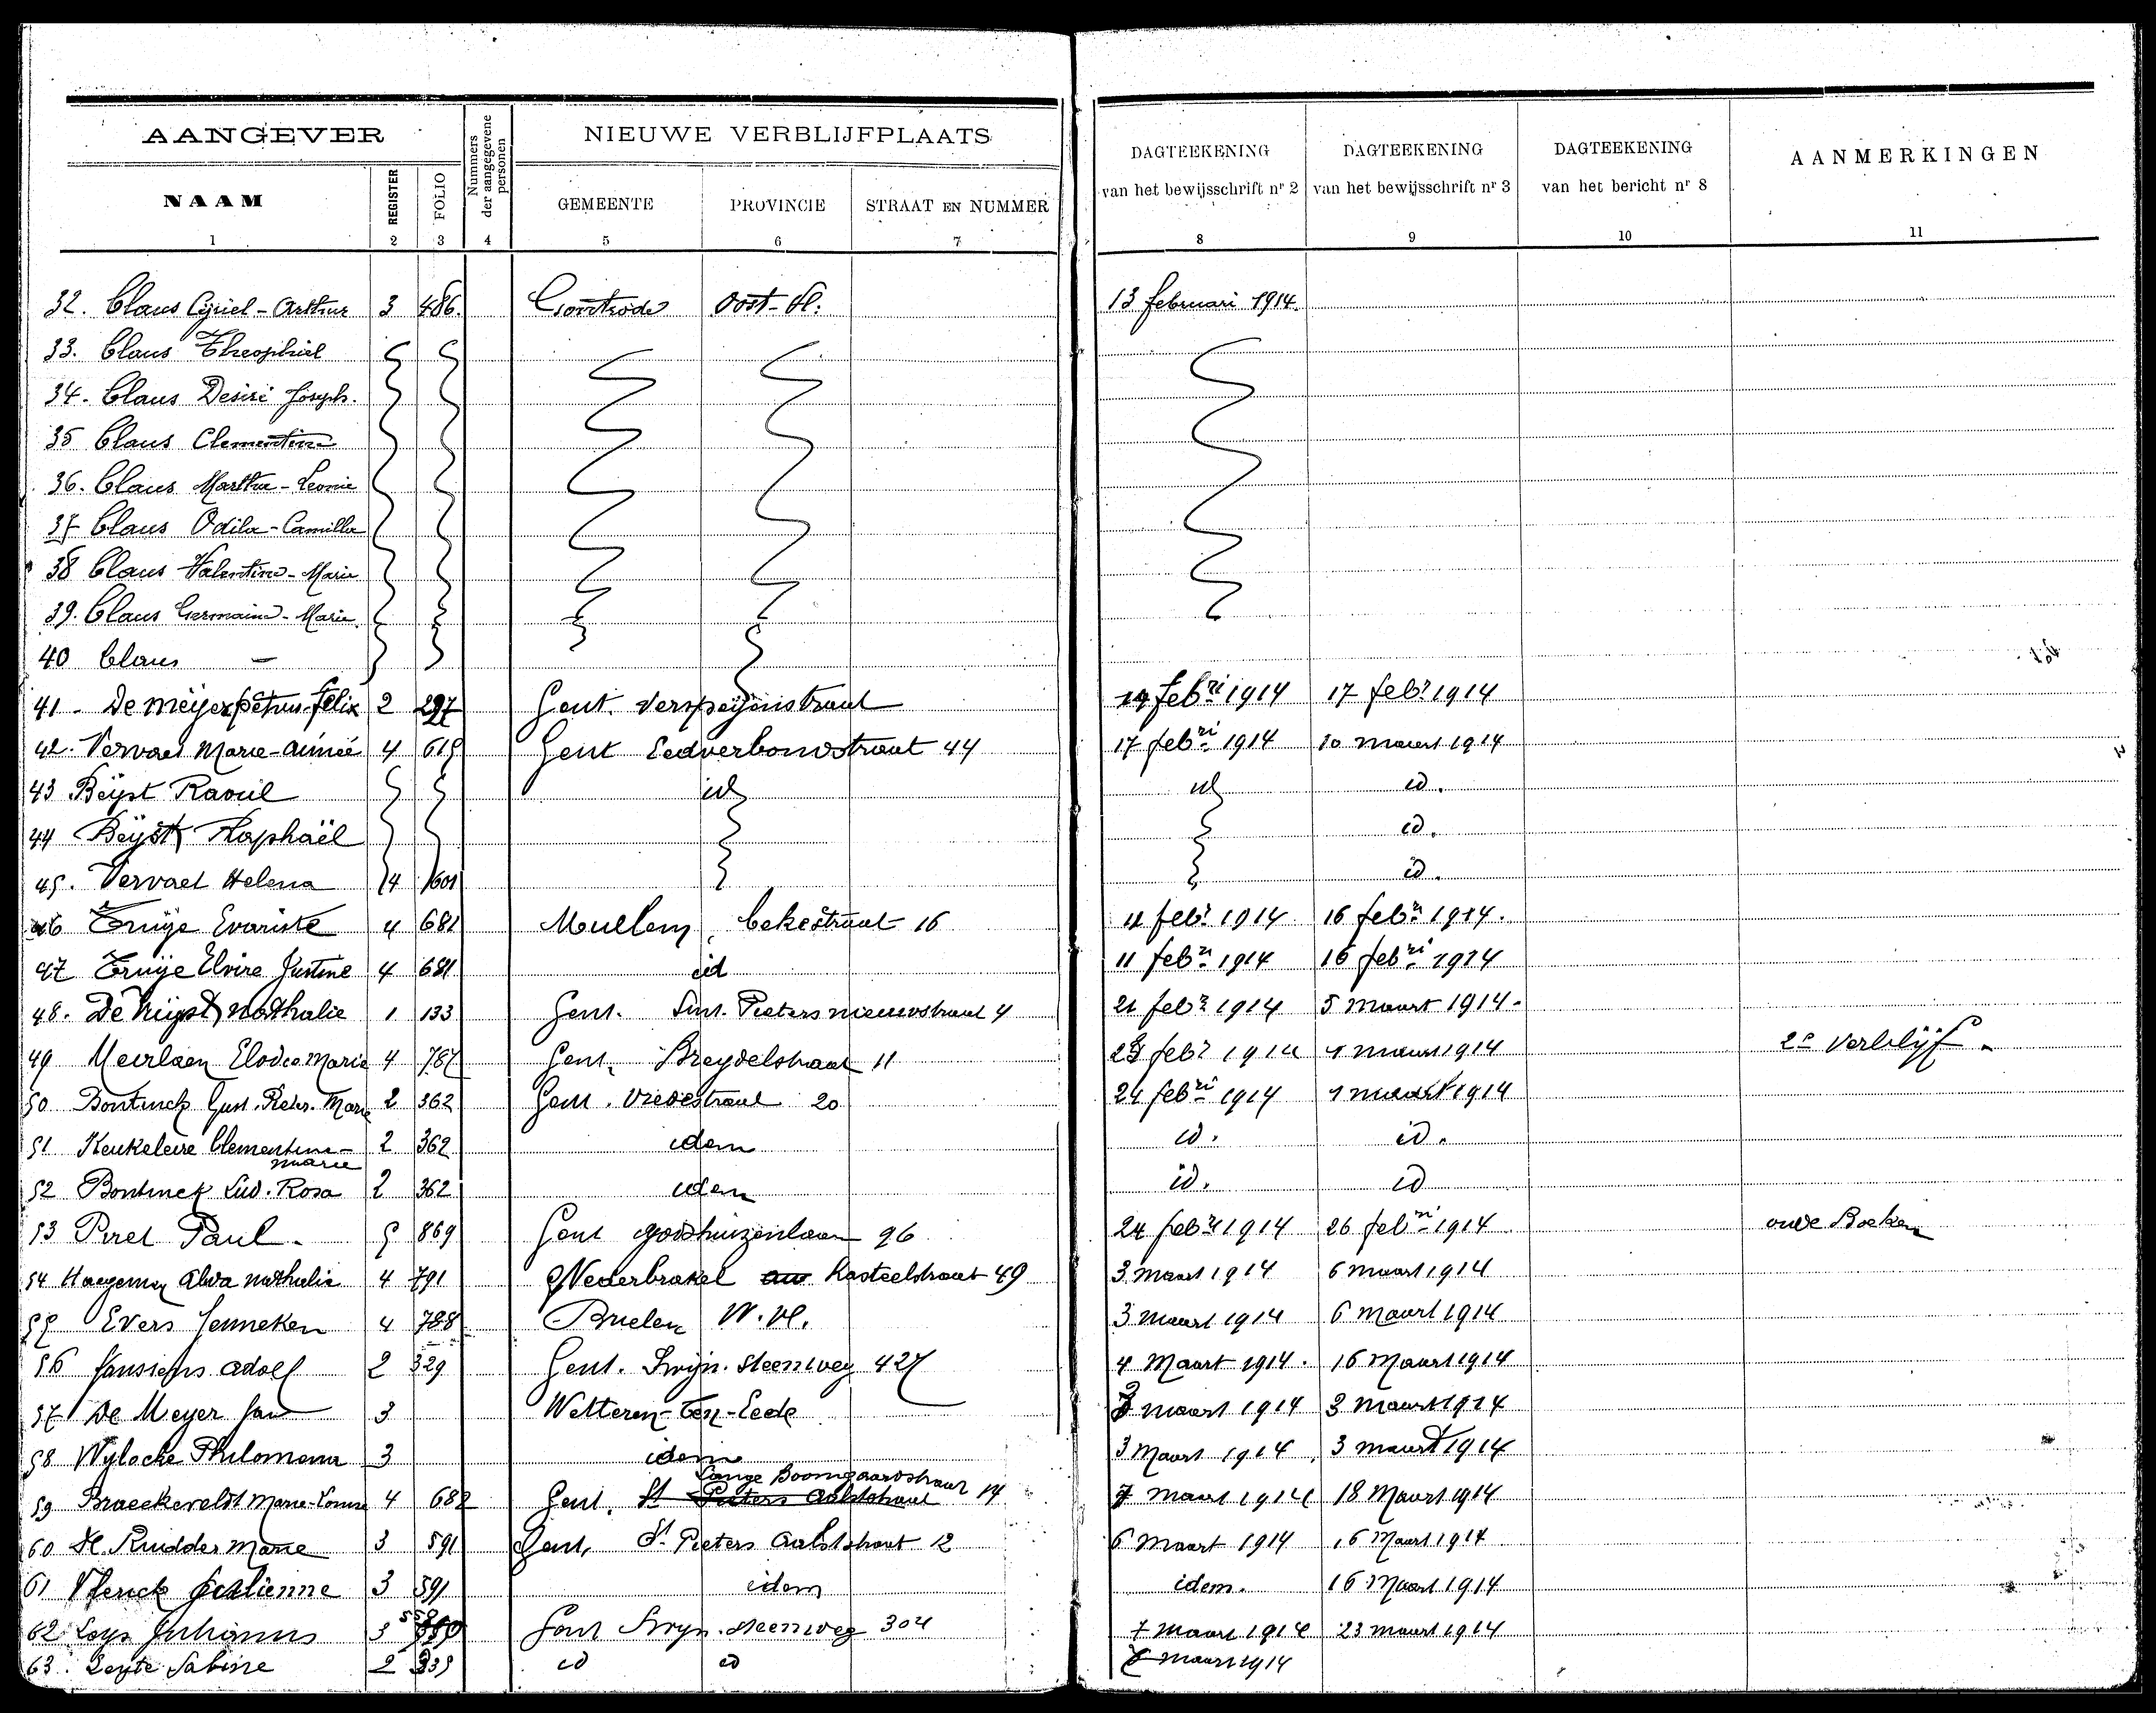 AANGEVER
Nummers der aangegevene personen
NIEUWE VERBLIJFPLAATS
DAGTEEKENING van het bewijsschrift nr 2
DAGTEEKENING van het bewijsschrift nr 3
DAGTEEKENING van het bericht nr 8
AANMERKINGEN
NAAM REGISTER FOLIO GEMEENTE PROVINCIE STRAAT EN NUMMER
1 2 3 4 5 6 7 8 9 10 11
32. Claus Cyriel-Arthur 3 486. Gontrode Oost-Vl: 13 februari 1914.
33. Claus Theophiel
34. Claus Desiré Joseph.
35 Claus Clementine
36. Claus Martha-Leonie
37 Claus Odila-Camilla
38 Claus Valentine-Marie
39. Claus Germaine-Marie
40 Claus —
41 - De Meyer petrus-felix 2 297 Gent. 14 febri 1914 17 febr 1914
42. Vervaet Marie-Aimée 4 619 Gent Eedverbondstraat 44 17 febri 1914 10 maart 1914
43 Beÿst Raoul id id id.
44 Beÿst Raphaël id.
45. Vervaet Helena 4 601 id.
46 Truÿe Evariste 4 681 Mullem, bekestraat 16 11 febr 1914 16 febri 1914.
47 Truÿe Elvire Justine 4 681 id 11 febri 1914 16 febri 1914
48. De Nathalie 1 133 Gent. Sint. Pieters nieuwstraat 4 21 febr 1914 5 maart 1914.
49 Meirlaen Elodie Marie 4 787 Gent, Breydelstraat 11 febr 1914 maart 1914 2e verblijf.
50 Bontinck Gust. Pieter. Marie 2 362 Gent. Vredestraat 20 24 febri 1914 maart 1914
51 Keukeleire Clementine-marie 2 362 idem id. id.
52 Bontinck Lud. Rosa 2 362 idem id. id
53 Piret Paul. 5 869 Gent godshuizenlaan 96 24 febri 1914 26 febri 1914 oude Boeken
54 Haegeman Alida nathalie 4 791 Nederbrakel Kasteelstraat 49 3 maart 1914 6 maart 1914
55 Evers Jenneken 4 788 W. Vl. 3 maart 1914 6 maart 1914
56 Janssens Adolf 2 329 Gent. Swijn. steenweg 427 4 Maart 1914. 16 Maart 1914
57 De Meyer Jan 3 Wetteren-Ten-Eede 3 maart 1914 3 maart 1914
58 Wylocke Philomena 3 idem 3 Maart 1914 3 maart 1914
Lange Boomgaardstraat
59 Braeckeveldt Marie-Louise 4 682 Gent. St Pieters Aalststraat 14 7 maart 1914 18 Maart 1914
60 De Ridder Marie 3 591 Gent, St Pieters Aalststraat 12 6 maart 1914 16 Maart 1914
61 3 591 idem idem. 16 Maart 1914
62 Loys 3 Gent Swyn. steenweg 304 7 maart 1914 23 maart 1914
63. Sabine 2 339 id id maart 1914